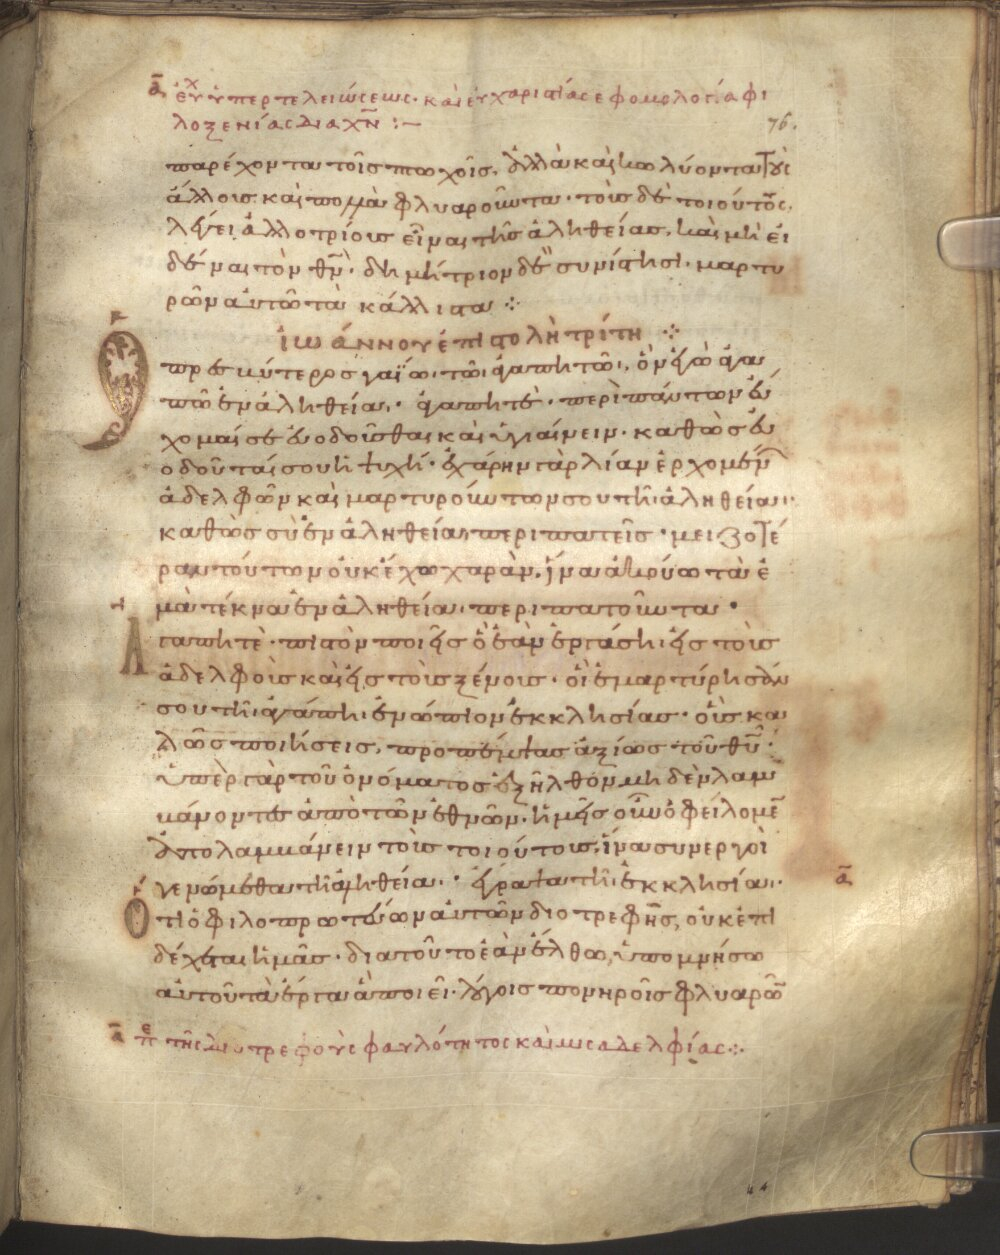 ᾱ εὐχ ὑπερ τελειώσεως· καὶ εὐχαριστίας ἐφ ομολοσία φι
λοξενίας δια χ̅ν̅ :—
76.
παρέχοντα τοῖς πτωχοῖς, ἀλλὰ καὶ κωλύοντα τοὺς
ἄλλους καὶ πομὰ φλυαροῦντα· τοὺς δὲ τοιούτους,
λέγει ἀλλοτρίους εἶναι τῆς ἀληθείας, καὶ μὴ εἰ
δέναι τὸν θ̅ν̅· δημήτριον δὲ συνίστησι· μαρτυ
ρῶν αὐτῶ τὰ κάλλιστα ⁘
ἰωάννου ἐπιστολὴ τρίτη ⁘
Ὁ πρεσβύτερος γαΐω τῶ ἀγαπητῶ, ὃν ἐγὼ ἀγα
πῶ ἐν ἀληθεία· ἀγαπητὲ· περὶ πάντων εὔ
χομαί σε εὐοδοῦσθαι καὶ ὑγιαίνειν· καθὼς εὐ
οδοῦταί σου ἡ ψυχή· ἐχάρην γὰρ λίαν ἐρχομένων
ἀδελφῶν καὶ μαρτυρούντων σου τῆ ἀληθεία·
καθὼς σὺ ἐν ἀληθεία περιπατεῖς· μειζοτέ
ραν τούτων οὐκ ἔχω χαρὰν, ἵνα ἀκούω τὰ ἐ
μὰ τέκνα ἐν ἀληθεία περιπατοῦντα·
Ἀγαπητὲ· πιστὸν ποιῆς ὃ ἐὰν ἐργάση εἰς τοὺς
ἀδελφοὺς καὶ εἰς τοὺς ξένους· οἳ ἐμαρτύρησάν
σου τῆ ἀγάπη ἐνώπιον ἐκκλησίας· οὓς κα
λῶς ποιήσεις, προπέμψας ἀξίως τοῦ θ̅υ̅·
ὑπὲρ γὰρ τοῦ ὀνόματος ἐξῆλθον μηδὲν λαμ
βάνοντες ἀπὸ τῶν ἐθνῶν· ἡμεῖς οὖν ὀφείλομεν
ἀπολαμβάνειν τοὺς τοιούτους, ἵνα συνεργοὶ
γενώμεθα τῆ ἀληθεία· ἔγραψα τῆ ἐκκλησία· ᾱ
Ὅτι ὁ φιλοπρωτεύων αὐτῶν διοτρεφῆς, οὐκ ἐπι
δέχεται ἡμᾶς· διατοῦτο ἐὰν ἔλθω, ὑπομνήσω
αὐτοῦ τὰ ἔργα ἃ ποιεῖ· λόγοις πονηροῖς φλυαρῶν
ᾱ πε τῆς διοτρεφοὺς φαυλότητος καὶ μισαδελφίας ⁘